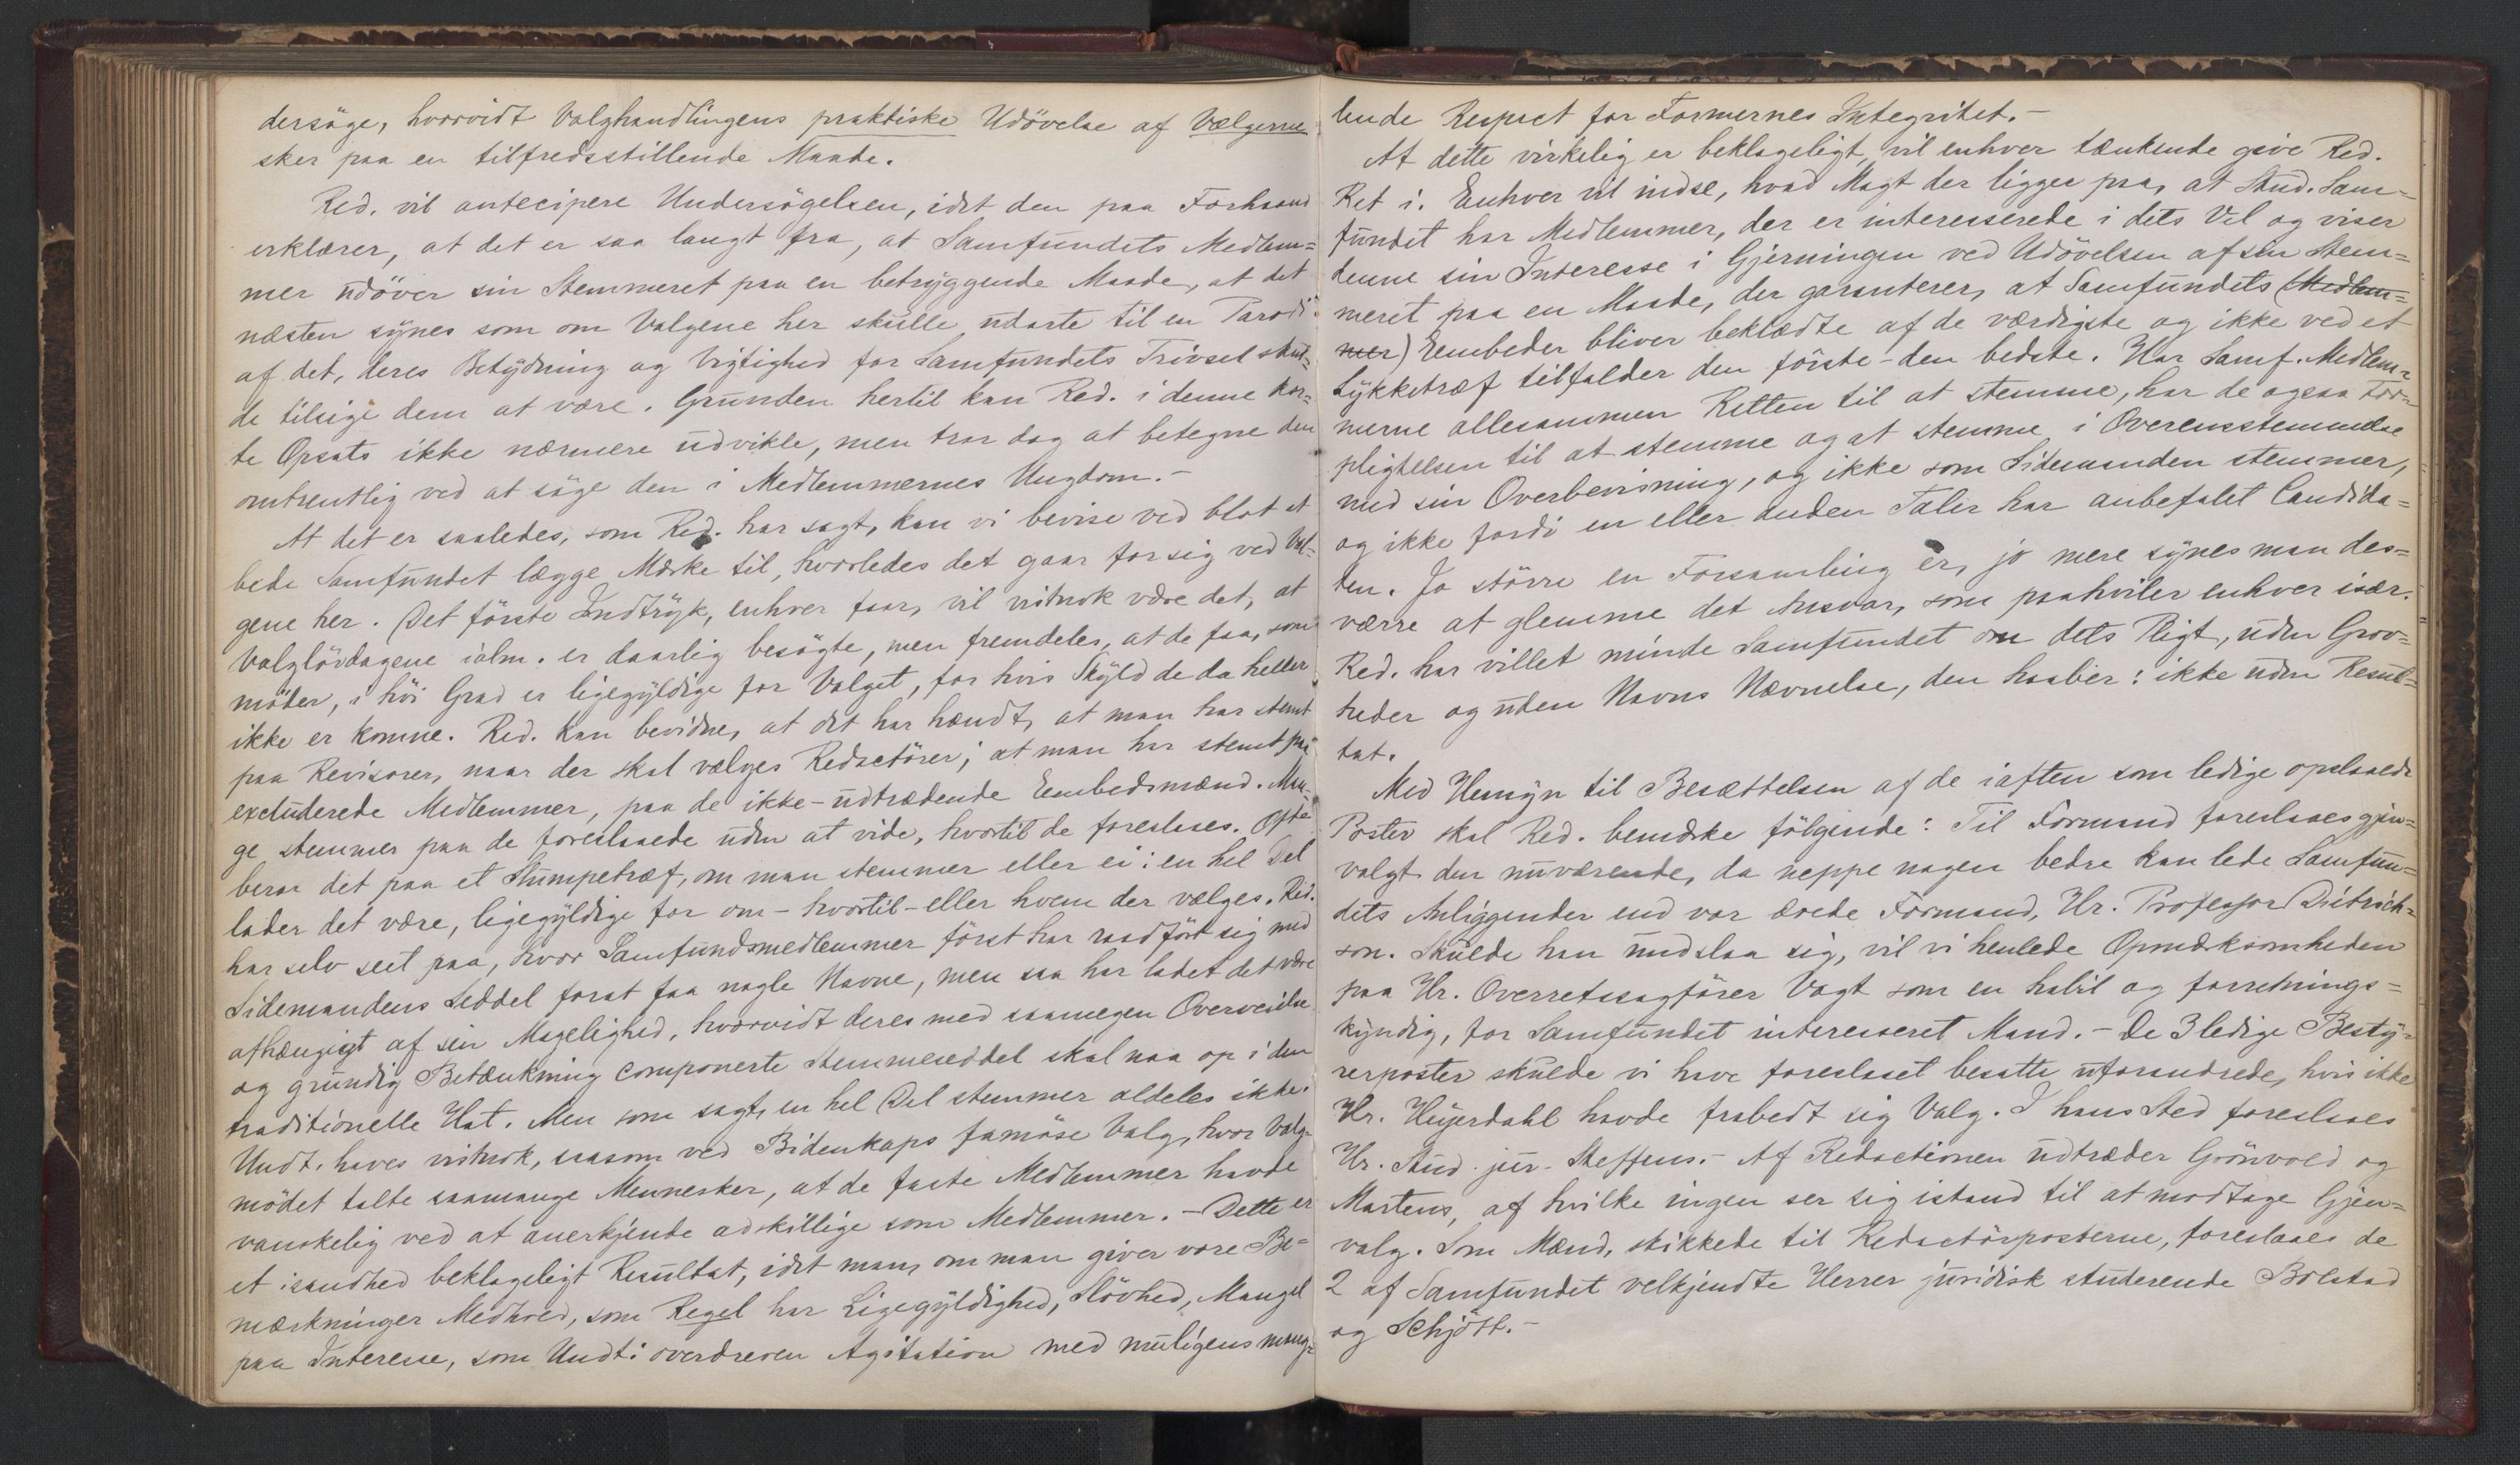 dersöge, hvorvidt Valghandlingens praktiske Udövelse af Vælgerne
sker paa en tilfredsstillende Maade.
Red. vil antecipere Undersögelsen, idet den paa Forhaand
erklærer, at det er saa langt fra, at Samfundets Medlem=
mer udöver sin Stemmeret paa en betryggende Maade, at det
næsten synes som om Valgene her skulle udarte til en Parodi
af det, deres Betydning og Vigtighed for Samfundets Trivsel skul=
de tilsige dem at være. Grunden hertil kan Red. i denne kor=
te Opsats ikke nærmere udvikle, men tror dog at betegne den
omtrentlig ved at söge den i Medlemmernes Ungdom.-
At det er saaledes, som Red. har sagt, kan vi bevise ved blot at
bede Samfundet lægge Mærke til, hvorledes det gaar for sig ved Val=
gene her. Det förste Indtryk, enhver faar, vil vistnok være det, at
Valglördagene ialm. er daarlig besögte, men fremdeles, at de faa, som
möder, i höi Grad er ligegyldige for Valget, for hvis Skyld de da heller
ikke er komne. Red. kan bevidne, at det har hændt, at man har stemt
paa Revisorer, naar der skal vælges Redactörer; at man har stemt paa
excluderede Medlemmer, paa de ikke-udtrædende Embedsmænd. Man=
ge stemmer paa de foreslaaede uden at vide, hvortil de foreslaaes. Ofte
beror det paa et Slumpetræf, om man stemmer eller ei: en hel Del
lader det være, ligegyldige for om- hvortil- eller hvem der vælges. Red.
har selv seet paa, hvor Samfundsmedlemmer först har raadfört sig med
Sidemandens Seddel forat faa nogle Navne, men saa har ladet det være
afhængigt af sin Magelighed, hvorvidt deres med saamegen Overveielse
og grundig Betænkning componerte Stemmeseddel skal naa op i den
traditionelle Hat. Men som sagt, en hel Del stemmer aldeles ikke.
Undt. haves vistnok, saasom ved Bidenkaps famöse Valg, hvor Valg=
mödet talte saamange Mennesker, at de faste Medlemmer havde
vanskelig ved at anerkjende adskillige som Medlemmer. - Dette er
et isandhed beklageligt Resultat, idet man, om man giver vore Be=
mærkninger Medhold, som Regel har Ligegyldighed, Slövhed, Mangel
paa Interesse, som Undt: overdreven Agitation med muligens mang=
lende Respect for Formernes Integritet.-
At dette virkelig er beklageligt, vil enhver tænkende give Red.
Ret i. Enhver vil indse, hvad Magt der ligger paa, at Stud. Sam=
fundet har Medlemmer, der er interesserede i dets Vel og viser
denne sin Interesse i Gjerningen ved Udövelsen af sin Stem=
meret paa en Maade, der garanterer, at Samfundets (Medlem=
mer) Eembeder bliver beklædte af de værdigste og ikke ved et
Lykketræf tilfalder den förste-den bedste. Har Samf. Medlem=
merne allesammen Retten til at stemme, har de ogsaa For=
pligtelsen til at stemme og at stemme i Overensstemmelse
med sin Overbevisning, og ikke som Sidemanden stemmer,
og ikke fordi en eller anden Taler har anbefalet Candida=
ten. Jo större en Forsamling er, jo mere synes man des=
værre at glemme det Ansvar, som paahviler enhver især.
Red. har villet minde Samfundet om dets Pligt, uden Grov=
heder og uden Navns Nævnelse, den haaber: ikke uden Resul=
tat.
Med Hensyn til Besættelsen af de iaften som ledige opslaaede
Poster skal Red. bemærke fölgende: Til Formand foreslaaes gjen=
valgt den nuværende, da neppe nogen bedre kan lede Samfun=
dets Anliggender end vor ærede Formand, Hr. Professor Dietrich=
son. Skulde han undslaa sig, vil vi henlede Opmærksomheden
paa Hr. Overretssagförer Vogt som en habil og forretnings=
kyndig, for Samfundet interesseret Mand. - De 3 ledige Besty=
rerposter skulde vi have foreslaaet besatte uforandrede, hvis ikke
Hr. Heyerdahl havde frabedt sig Valg. I hans Sted foreslaaes
Hr. Stud. jur. Steffens.- Af Redactionen udtræder Grönvold og
Martens, af hvilke ingen ser sig istand til at modtage Gjen=
valg. Som Mænd, skikkede til Redactörposterne, foreslaaes de
2 af Samfundet velkjendte Herrer juridisk studerende Bolstad
og Schjött.-